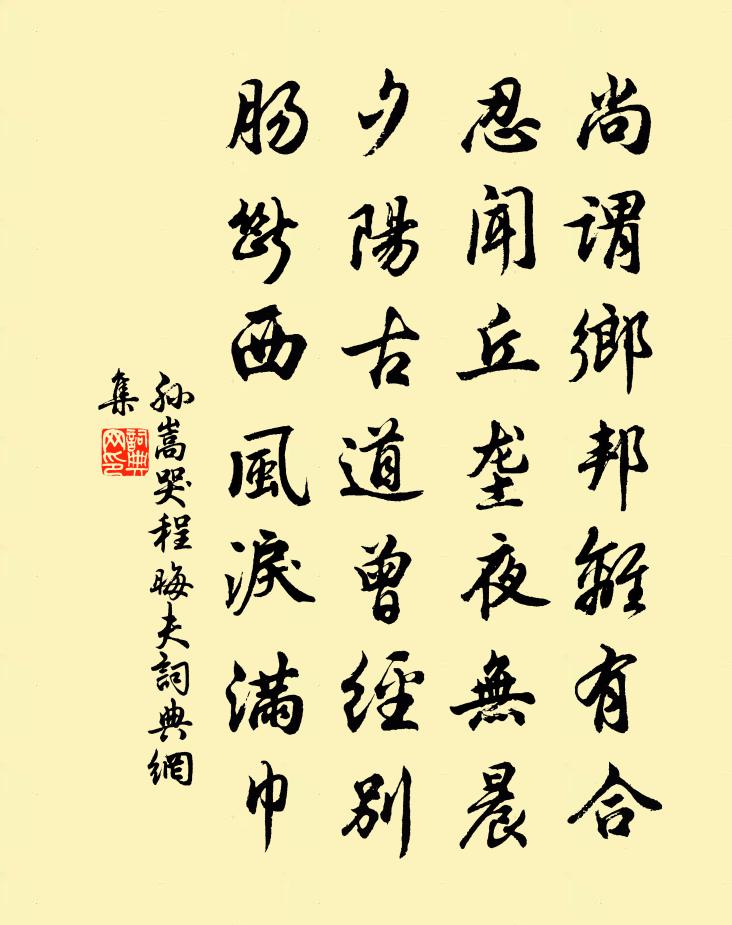 尚謂鄉邦離有合
忍聞丘垄夜無晨
夕陽古道曾經別
肠斷西風淚滿巾
孙嵩哭程晦夫詞典網
集
詞典
网印